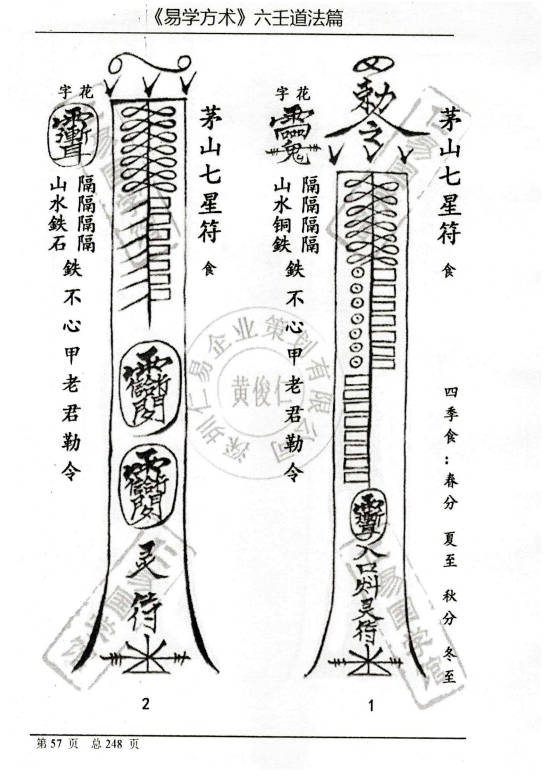 《易学方术》六壬道法篇
茅山七星符 食
四季食：春分 夏至 秋分 冬至
勅令
入口灵符
1
花字
隔山
隔水
隔铜
隔鉄
鉄不心甲老君勒令
茅山七星符 食
灵符
2
花字
隔山
隔水
隔鉄
隔石
鉄不心甲老君勒令
深圳仁易企业策划有限公司
黄俊仁
第57页 总248页